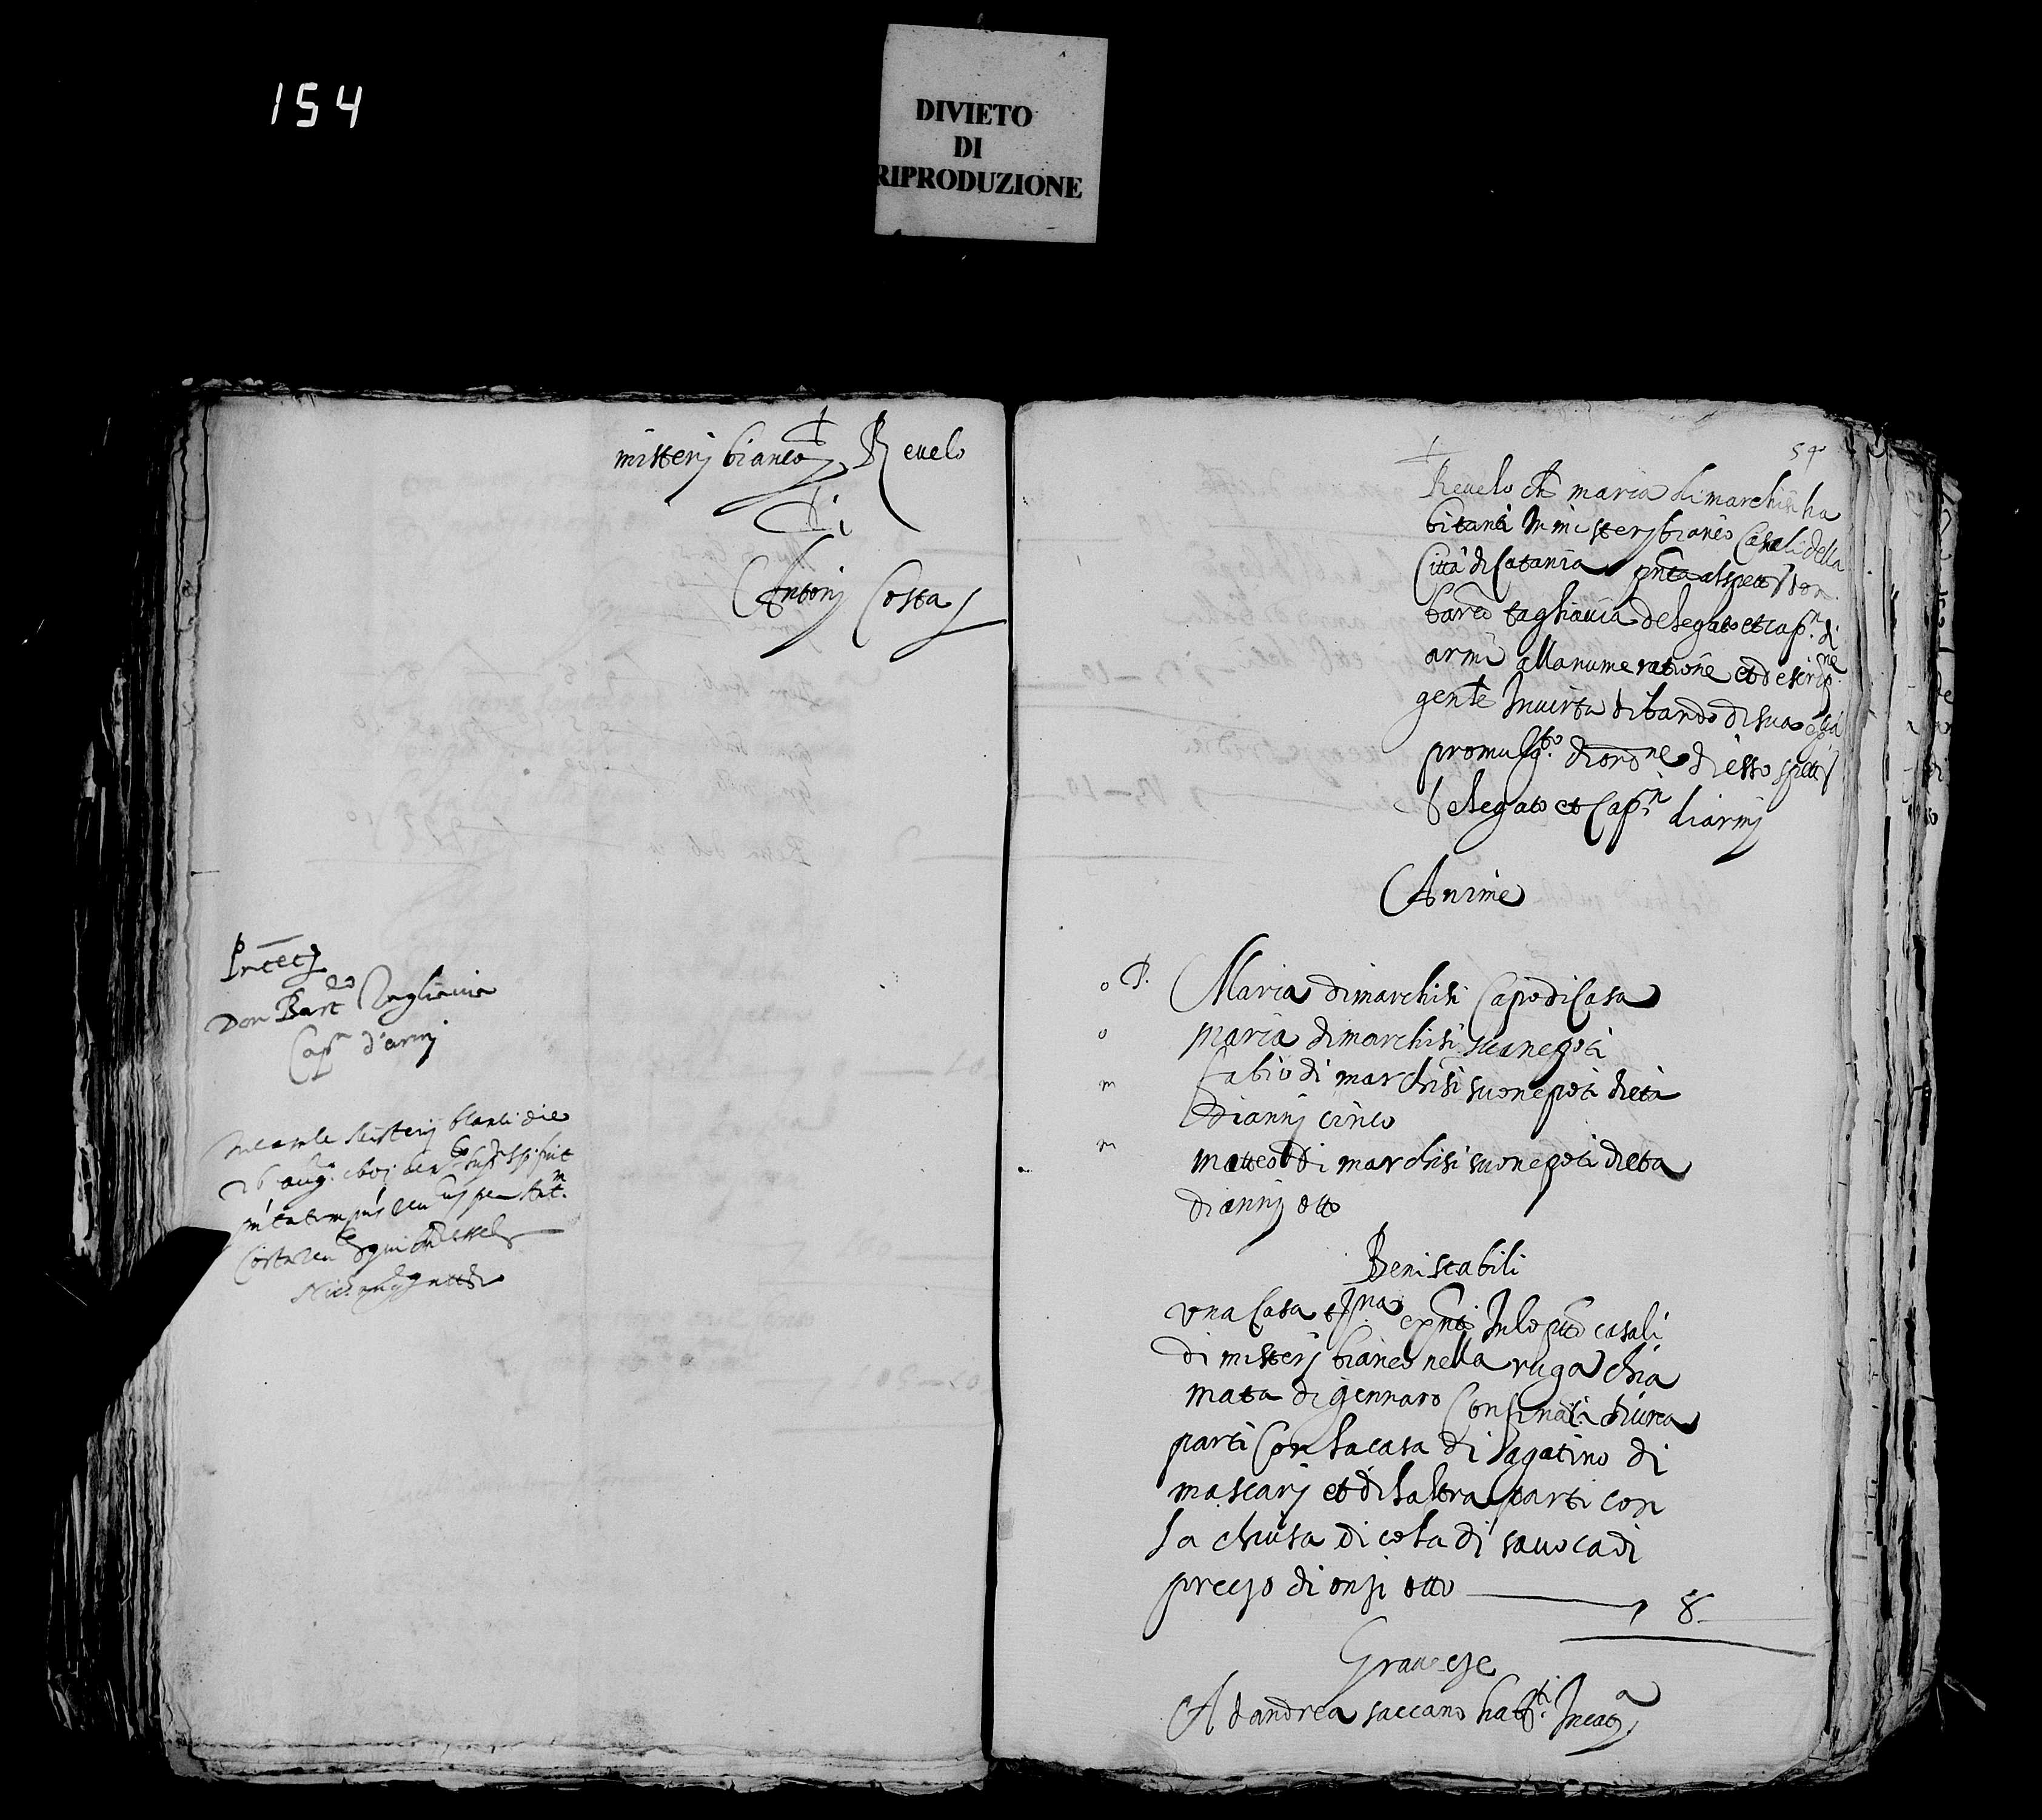 154
DIVIETO
DI
RIPRODUZIONE
misterj bianco Revelo
di
Antonj Costa
Don Bart.eo Tagliavia
Cap.n d'armj
26 aug.
54
Revelo ch maria di marchisi ha
bitanti In misterj bianco Casali della
Città di Catania pnta al spett. don
bar.eo tagliavia delegato et cap.n di
armi alla numeratione et descrip.ne
gente In virtu di bando di sua ecc.a
promulg.to di ord.ne di esso spett.
delegato et Cap.n di armj
Anime
o P. Maria di marchisi Capo di Casa
o maria di marchisi sua nepoti
m fabio di marchisi suo nepoti di eta
di annj cinco
m matteo di marchisi suo nepoti di eta
di annj otto
Beni stabili
una Casa t.na exnti In lo ptto casali
di misterj bianco nella ruga chia
mata di gennaro Confinati di una
parti Con la casa di Jagatino di
mascarj et di l altra parti con
la chiusa di cola di savoca di
prezzo di onzi otto 8
Gravezze
Ad andrea saccano hab.ti In cat.a